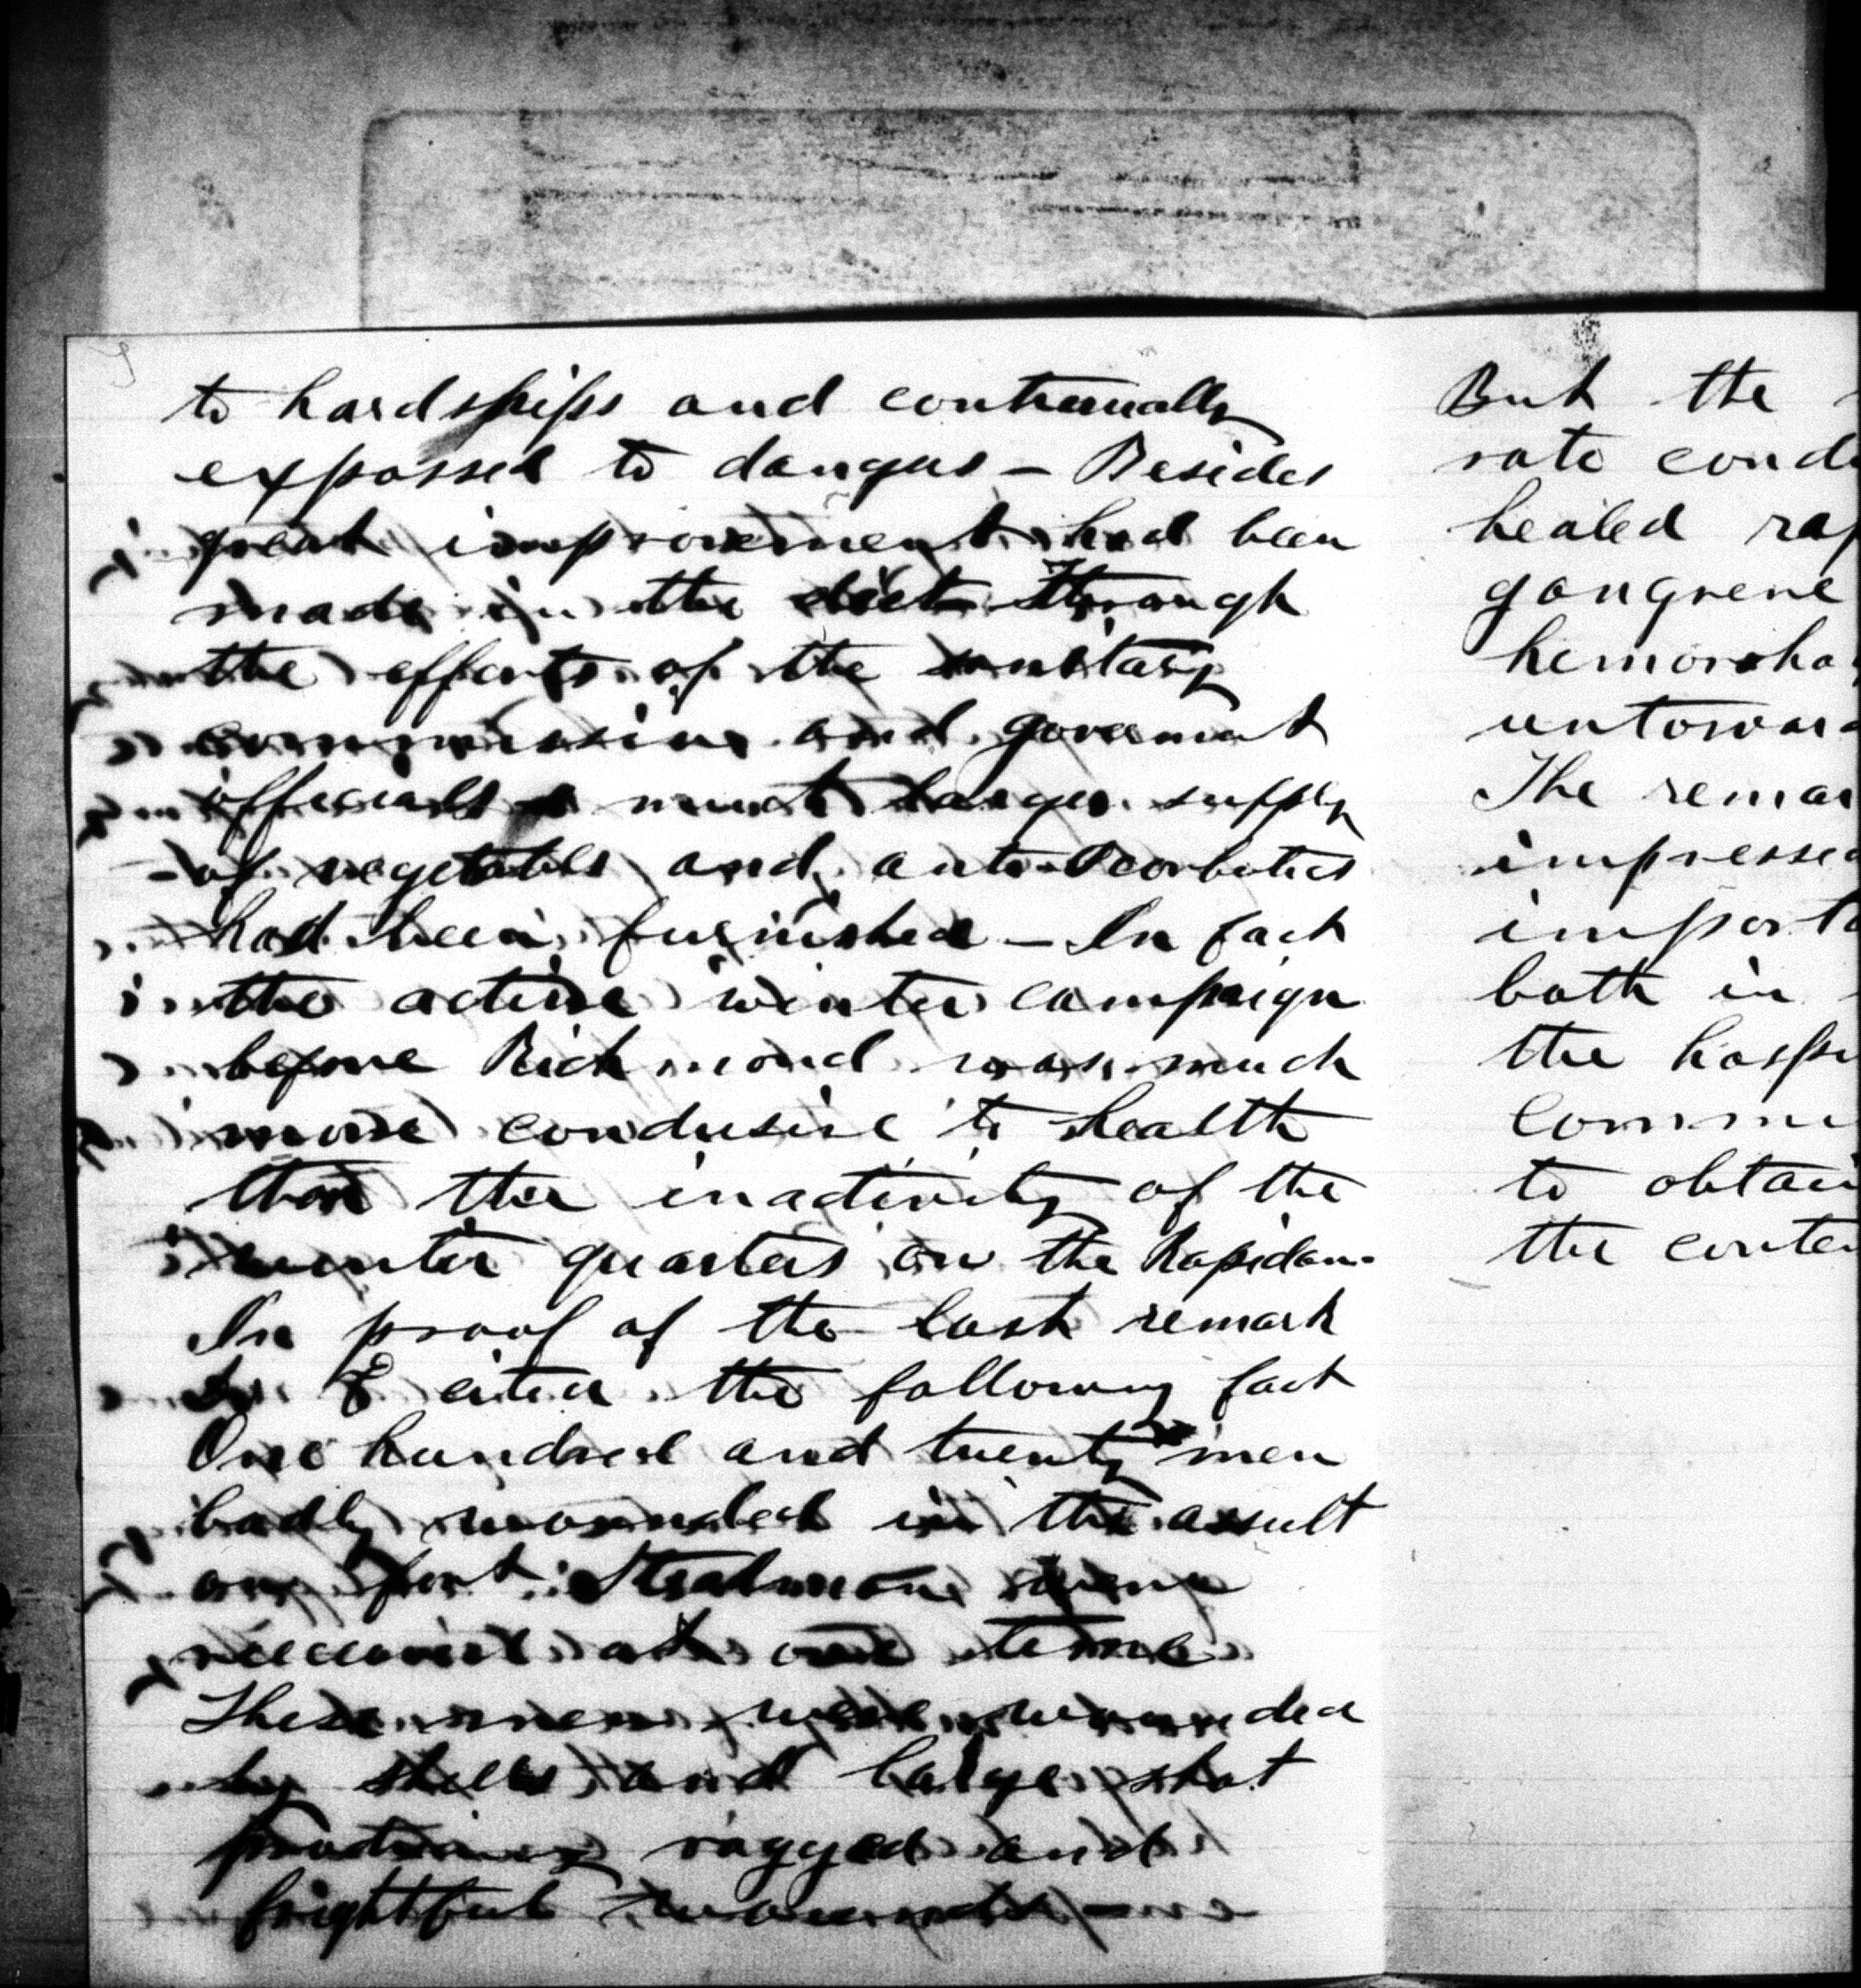 to hardships and continually
exposed to dangers – Besides
great improvement had been
made in the diet through
the efforts of the sanitary
commission and goverment
officials a much larger supply
of vegetables and anti-Scorbutics
had been furnished – In fact
the active winter campaign
before Richmond was much
more condusive to health
than the inactivity of the
winter quarters on the Rapidan.
In proof of the last remark
I cited the following fact
One hundred and twenty men
badly wounded in the assult
on fort Steadman were
received at one time
These men were wounded
by shells and large shot
producing ragged and
frightful wounds
But the
rate cond
healed rap
gangrene
hemorrha
untoward
The remar
impressed
importa
both in
the hospi
Commi
to obtain
the conten